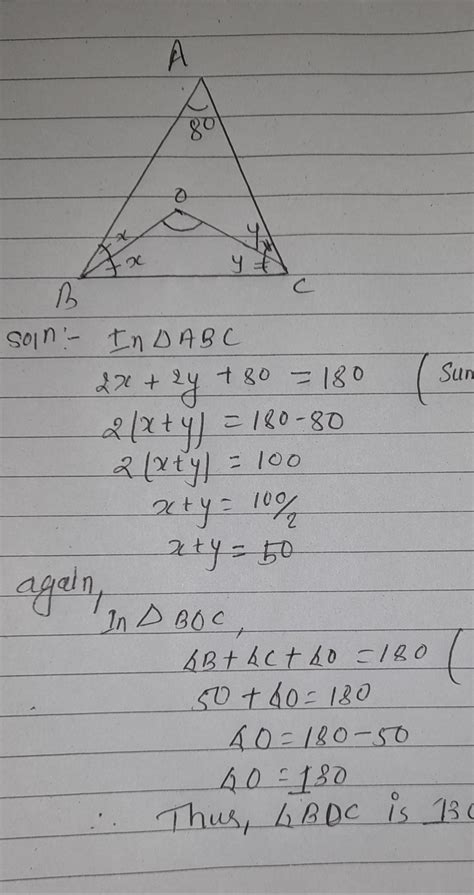 A
80
O
x
x
y
y
B
C
Soln:- In △ABC
2x + 2y + 80 = 180 (Sum
2(x+y) = 180-80
2(x+y) = 100
x+y = 100/2
x+y = 50
again,
In △ BOC,
∠B + ∠C + ∠O = 180 (
50 + ∠O = 180
∠O = 180-50
∠O = 130
∴ Thus, ∠BOC is 130